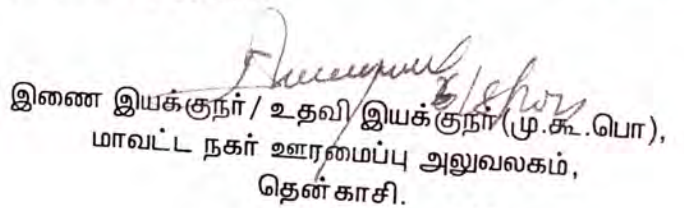 இணை இயக்குநர்/ உதவி இயக்குநர்(மு.கூ.பொ),
மாவட்ட நகர் ஊரமைப்பு அலுவலகம்,
தென்காசி.